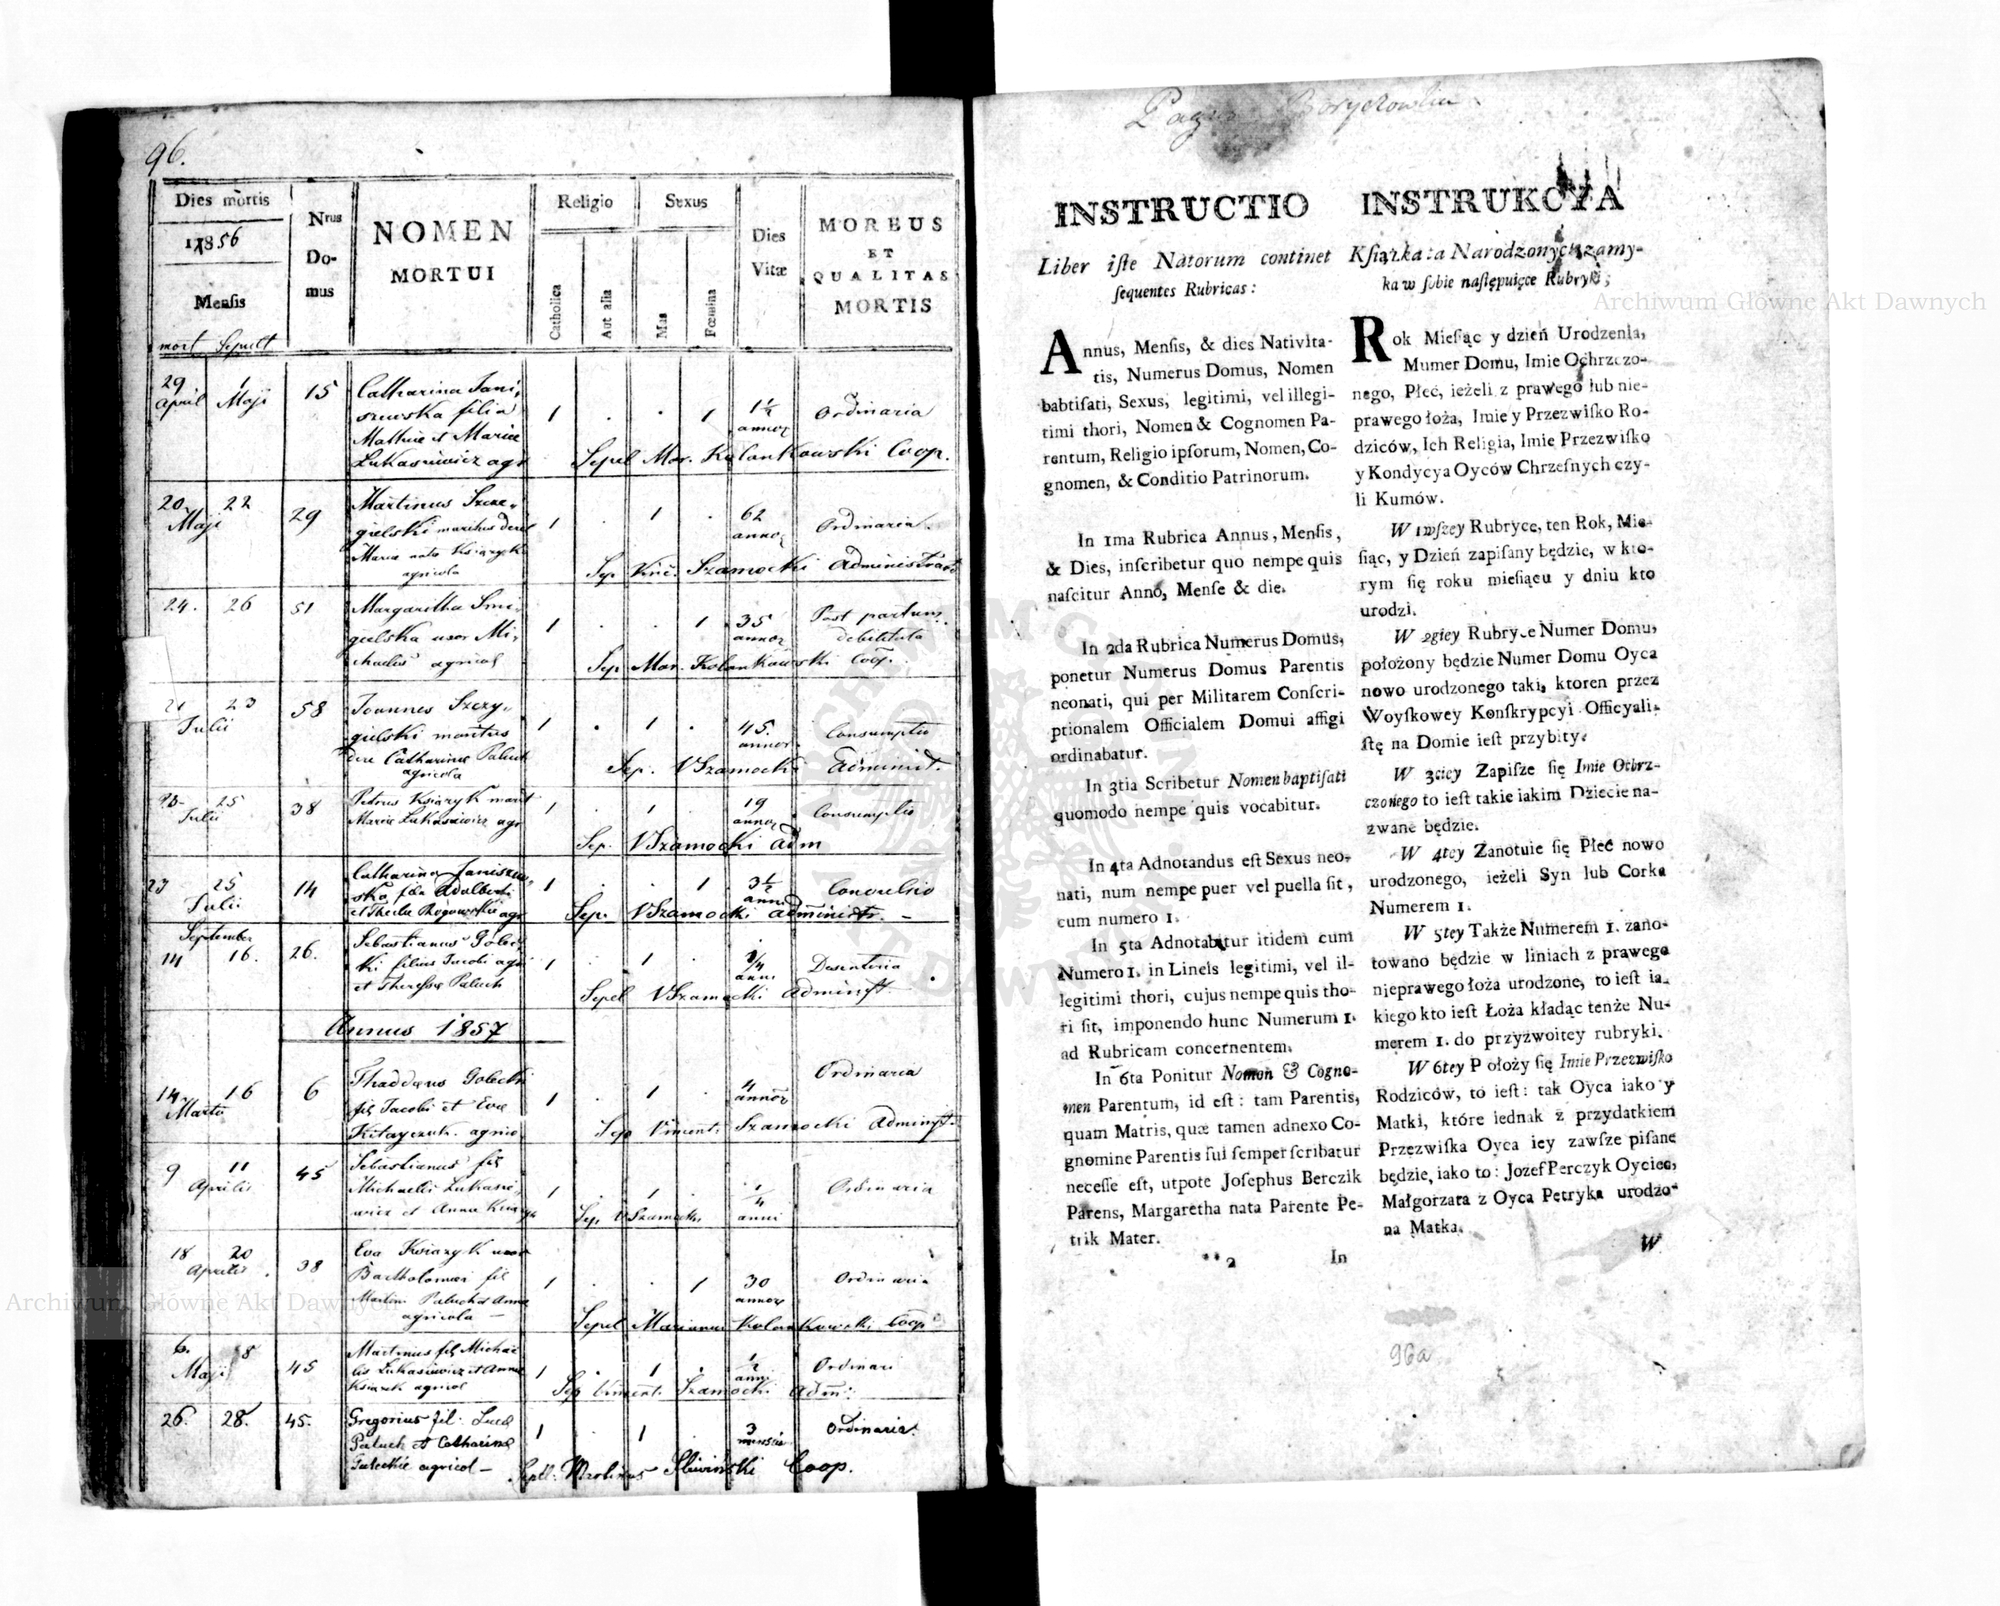 96.
Dies mortis
1856
Mensis
mort Sepult
Nrus
Do-
mus
NOMEN
MORTUI
Religio
Catholica
Aut alia
Sexus
Mas
Fœmina
Dies
Vitæ
MORBUS
ET
QUALITAS
MORTIS
29 April 1 Maji 15 Catharina Jani-
szewska filia
Mathiæ et Mariæ
Lukasiewicz agr
1 . . 1 1½ annor Ordinaria
Sepel Mar. Kolankowski Coop.
20 22 Maji 29 Martinus Szcze-
gielski maritus derel
Maria nata Ksiazyk
agricola
1 . 1 . 62 annor Ordinaria
Sep. Vinc. Szamocki Administrator
24. 26 51 Margaritha Smi-
gielska uxor Mi-
chaelis agricol
1 . . 1 35 annor Post partum
debilitata
Sep. Mar. Kolankowski Coop.
21 23 Julii 58 Joannes Szczy-
gielski maritus
dere Catharinæ Paluch
agricola
1 . 1 . 45. annor Consumptio
Sep. VSzamocki Administ.
23. 25 Julii 38 Petrus Ksiazyk marit
Mariæ Lukasiewicz agr
1 . 1 . 19 annor Consumptio
Sep. VSzamocki adm
23 25 Julii 14 Catharina Janiszew-
ska fila Adalberti
et Theclæ Rogowskie agr
1 . . 1 3½ anno Convulsio
Sep. VSzamocki administr. -
September
14 16. 26. Sebastianus Golec-
ki filius Jacobi agr
et Theresæ Paluch
1 . 1 . ¾ anni Dysenteria
Sepel VSzamocki Adminst.
Annus 1857
14 16 Martii 6 Thaddæus Golecki
fil Jacobi et Evæ
Kitayczuk. agrico
1 . 1 . 4 annor Ordinaria
Sep Vincent. Szamocki Adminst.
9 11 Aprilis 45 Sebastianus fil
Michaelis Lukasie-
wicz et Anna Ksiazyk
1 . 1 . ¼ anni Ordinaria
Sep. VSzamocki
18 20 Aprilis 38 Eva Ksiazyk uxor
Bartholomæi fil
Martini Paluch et Anna
agricola -
1 . . 1 30 annor Ordinaria
Sepel Marianus Kolankowski Coop
6. 8 Maji 45 Martinus fil Michae-
lis Lukasiewicz et Anna
Ksiazek agricol
1 . 1 . ½ anni Ordinari
Sep Vincent. Szamocki adm:
26. 28. 45. Gregorius fil. Lucæ
Paluch et Catharinæ
Goleckie agricol -
1 . 1 . 3 mensis Ordinaria.
Sepel: Sliwiński Coop.
Borychowka
INSTRUCTIO
Liber iſte Natorum continet
ſequentes Rubricas:
Annus, Menſis, & dies Nativita-
tis, Numerus Domus, Nomen
babtiſati, Sexus, legitimi, vel illegi-
timi thori, Nomen & Cognomen Pa-
rentum, Religio ipſorum, Nomen, Co-
gnomen, & Conditio Patrinorum.
In 1ma Rubrica Annus, Menſis,
& Dies, inſcribetur quo nempe quis
naſcitur Anno, Menſe & die.
In 2da Rubrica Numerus Domus,
ponetur Numerus Domus Parentis
neonati, qui per Militarem Conſcri-
ptionalem Officialem Domui affigi
ordinabatur.
In 3tia Scribetur Nomen baptiſati
quomodo nempe quis vocabitur.
In 4ta Adnotandus eſt Sexus neo-
nati, num nempe puer vel puella ſit,
cum numero 1.
In 5ta Adnotabitur itidem cum
Numero 1. in Lineis legitimi, vel il-
legitimi thori, cujus nempe quis tho-
ri ſit, imponendo hunc Numerum 1.
ad Rubricam concernentem.
In 6ta Ponitur Nomen & Cogno-
men Parentum, id eſt: tam Parentis,
quam Matris, quæ tamen adnexo Co-
gnomine Parentis ſui ſemper ſcribatur
neceſſe eſt, utpote Joſephus Berczik
Parens, Margaretha nata Parente Pe-
trik Mater.
**2 In
INSTRUKCYA
Kſiążka ta Narodzonych zamy-
ka w ſobie naſtępuiące Rubryki;
Rok Mieſiąc y dzień Urodzenia,
Mumer Domu, Imie Ochrzczo-
nego, Płeć, ieżeli z prawego lub nie-
prawego łoża, Imie y Przezwiſko Ro-
dziców, Ich Religia, Imie Przezwiſko
y Kondycya Oyców Chrzeſnych czy-
li Kumów.
W 1wſzey Rubryce, ten Rok, Mie-
ſiąc, y Dzień zapiſany będzie, w kto-
rym ſię roku mieſiącu y dniu kto
urodzi.
W 2giey Rubryce Numer Domu,
położony będzie Numer Domu Oyca
nowo urodzonego taki, ktoren przez
Woyſkowey Konſkrypcyi Officyali-
ſtę na Domie ieſt przybity.
W 3ciey Zapiſze ſię Imie Ochrz-
czonego to ieſt takie iakim Dziecie na-
zwane będzie.
W 4tey Zanotuie ſię Płeć nowo
urodzonego, ieżeli Syn lub Corka
Numerem 1.
W 5tey Także Numerem 1. zano-
towano będzie w liniach z prawego
nieprawego łoża urodzone, to ieſt ia-
kiego kto ieſt Łoża kładąc tenże Nu-
merem 1. do przyzwoitey rubryki.
W 6tey Położy ſię Imie Przezwiſko
Rodziców, to ieſt: tak Oyca iako y
Matki, które iednak z przydatkiem
Przezwiſka Oyca iey zawſze piſane
będzie, iako to: Jozef Perczyk Oyciec,
Małgorzata z Oyca Petryka urodzo-
na Matka.
W
96a
Archiwum Główne Akt Dawnych
Archiwum Główne Akt Dawnych
ARCHIWUM GŁÓWNE AKT DAWNYCH